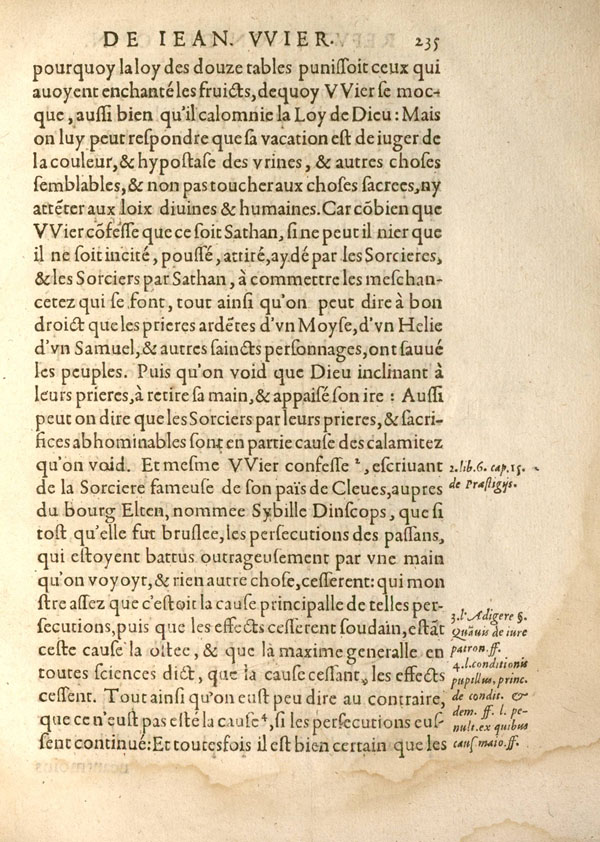 DE IEAN. VVIER. 235
pourquoy la loy des douze tables punissoit ceux qui
auoyent enchanté les fruicts, dequoy VVier se moc-
que, aussi bien qu'il calomnie la Loy de Dieu: Mais
on luy peut respondre que sa vacation est de iuger de
la couleur, & hypostase des vrines, & autres choses
semblables, & non pas toucher aux choses sacrees, ny
attẽter aux loix diuines & humaines. Car cõbien que
VVier cõfesse que ce soit Sathan, si ne peut il nier que
il ne soit incité, poussé, attiré, aydé par les Sorcieres,
& les Sorciers par Sathan, à commettre les meschan-
cetez qui se font, tout ainsi qu'on peut dire à bon
droict que les prieres ardẽtes d'vn Moyse, d'vn Helie
d'vn Samuel, & autres saincts personnages, ont sauué
les peuples. Puis qu'on void que Dieu inclinant à
leurs prieres, à retiré sa main, & appaisé son ire: Aussi
peut on dire que les Sorciers par leurs prieres, & sacri-
fices abhominables sont en partie cause des calamitez
qu'on void. Et mesme VVier confesse ², escriuant
de la Sorciere fameuse de son païs de Cleues, aupres
du bourg Elten, nommee Sybille Dinscops, que si
tost qu'elle fut bruslee, les persecutions des passans,
qui estoyent battus outrageusement par vne main
qu'on voyoyt, & rien autre chose, cesserent: qui mon
stre assez que c'estoit la cause principalle de telles per-
secutions, puis que les effects cesserent soudain, estãt
ceste cause la ostee, & que la maxime generalle en
toutes sciences dict, que la cause cessant, les effects
cessent. Tout ainsi qu'on eust peu dire au contraire,
que ce n'eust pas esté la cause⁴, si les persecutions eus-
sent continué: Et toutesfois il est bien certain que les
2. lib. 6. cap. 15.
de Præstigijs.
3. l' Adigere §.
Quãuis de iure
patron. ff.
4. l. conditionis
pupillus, princ.
de condit. &
dem. ff. l. pe-
nult. ex quibus
caus. maio. ff.